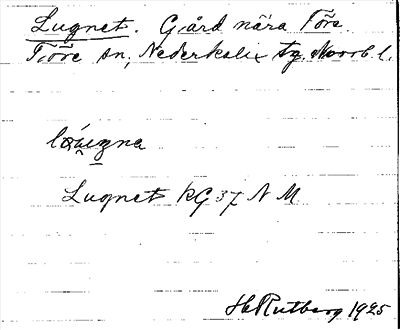 Lugnet. Gård nära Töre.
Töre sn, Nederkalix tg. Norrb. l.
Lugnet KG 37 N M.
H Rutberg 1925